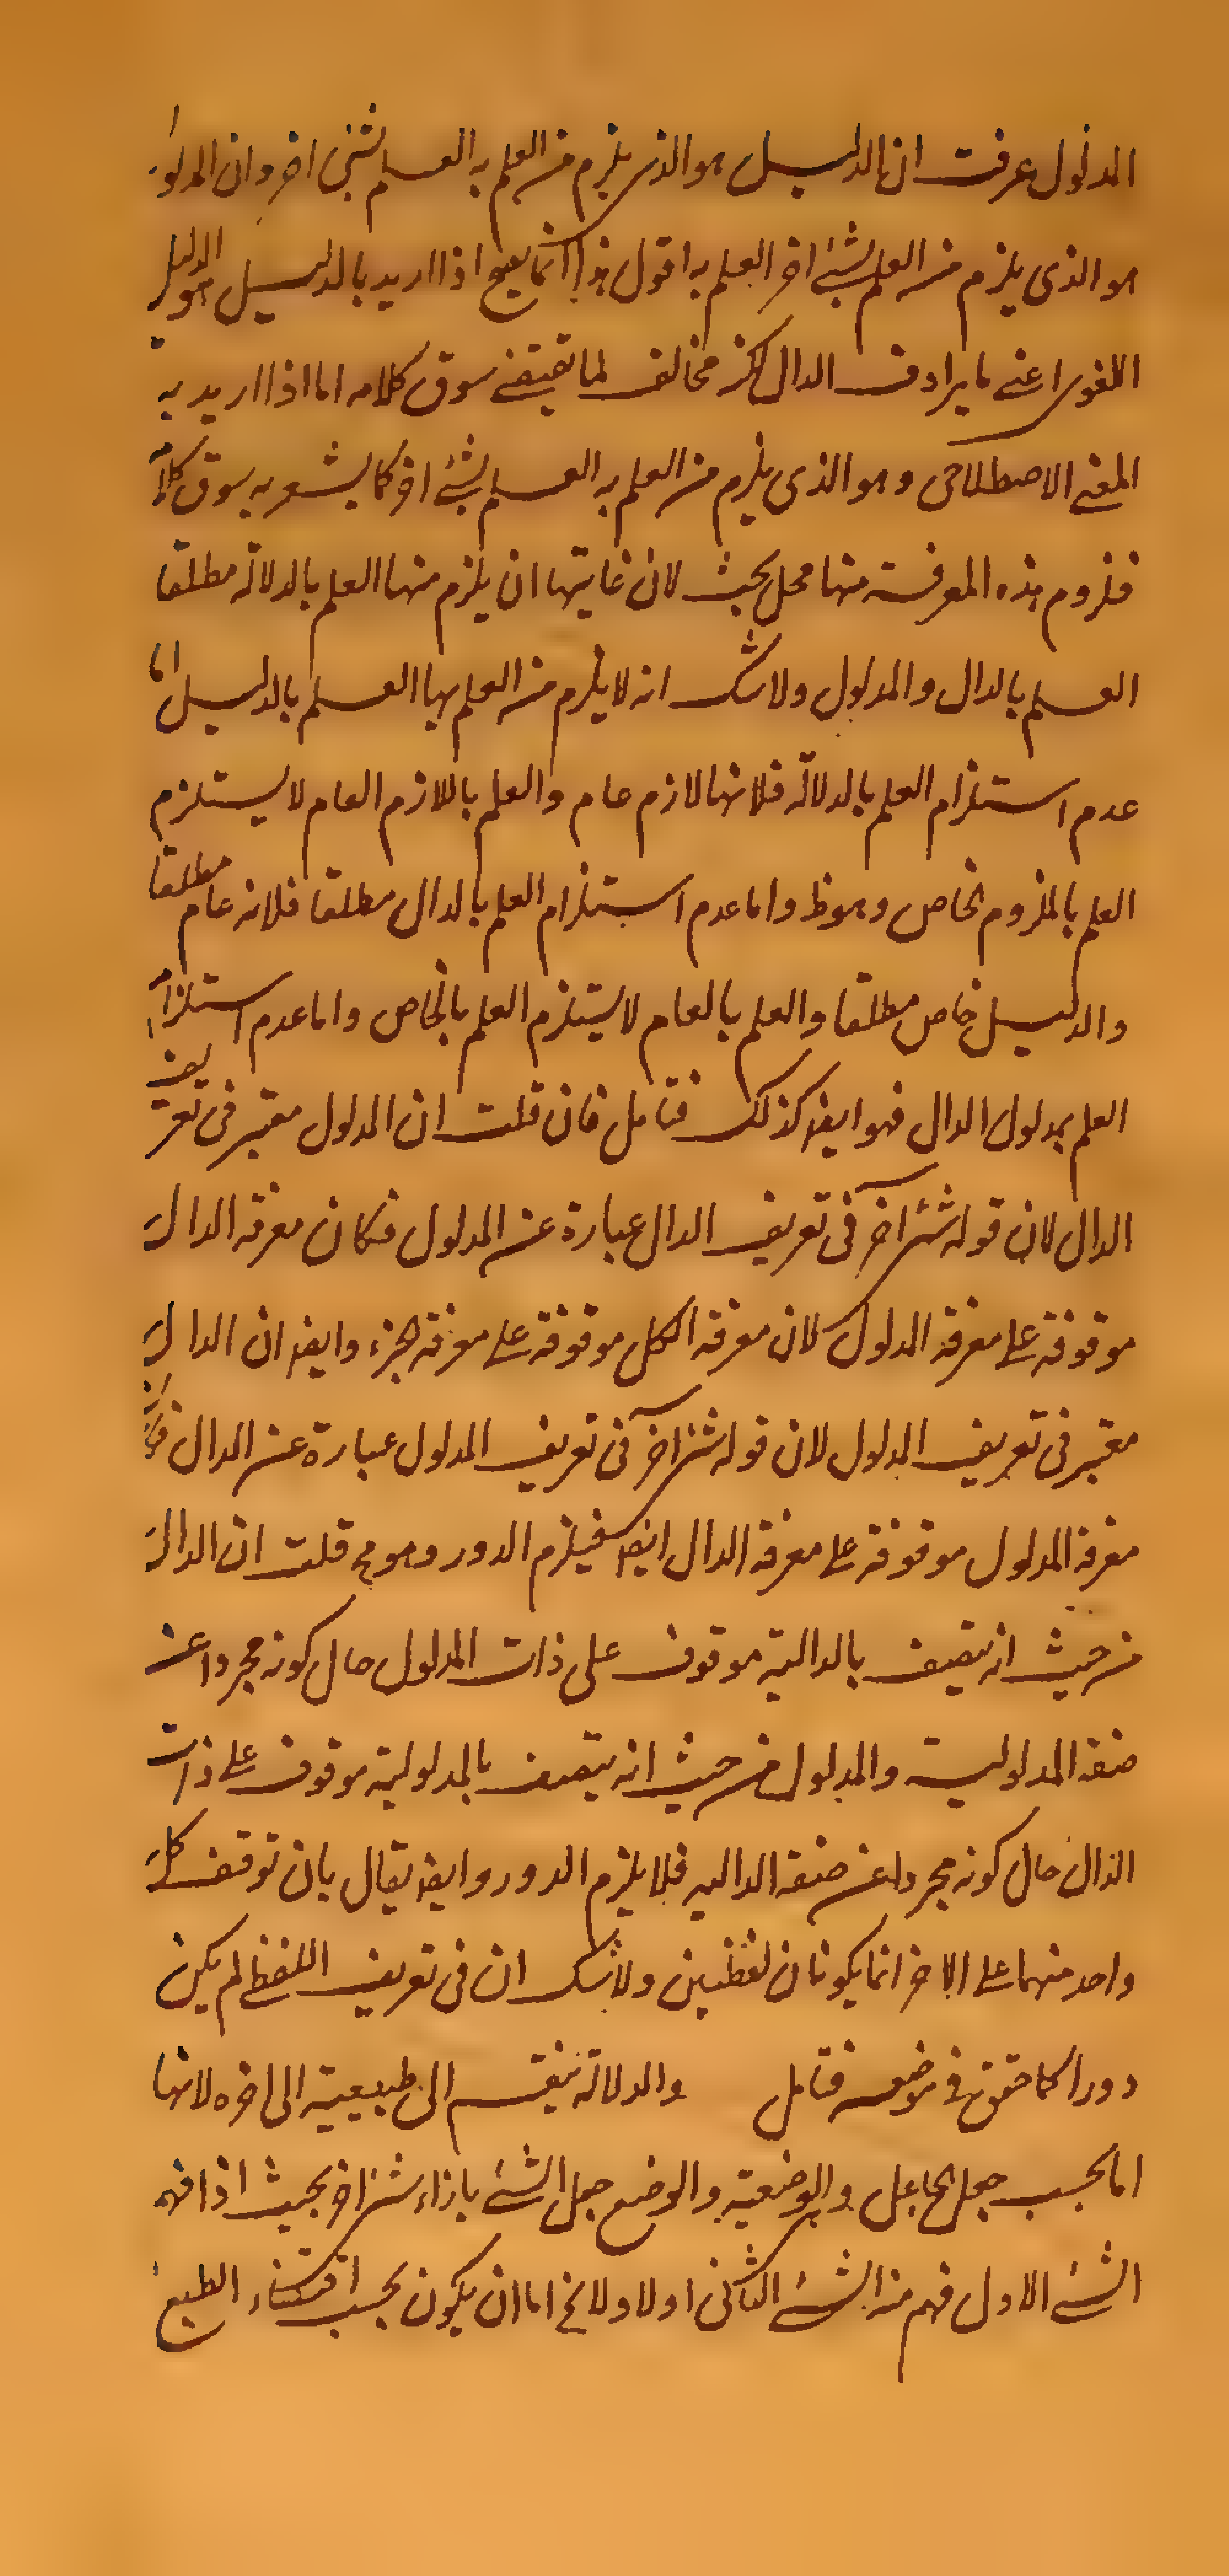 المدلول عرفت ان الدليل هو الذى يلزم من العلم به العلم بشئ اخر وان المدلول
هو الذى يلزم من العلم بشئ اخر العلم به اقول هذا انما يصح اذا اريد بالدليل هو الدليل
اللغوى اعنى ما يرادف الدال لكن مخالف لما يقتضيه سوق كلامه اما اذا اريد به
المعنى الاصطلاحى وهو الذى يلزم من العلم به العلم بشئ اخر كما يشعر به سوق كلامه
فلزوم هذه المعرفة منها محل بحث لان غايتها ان يلزم منها العلم بالدلالة مطلقا
العلم بالدال والمدلول ولا شك انه لا يلزم من العلم بها العلم بالدليل اما
عدم استلزام العلم بالدلالة فلانها لازم عام والعلم باللازم العام لا يستلزم
العلم بالملزوم الخاص وهو ظ واما عدم استلزام العلم بالدال مطلقا فلانه عام مطلقا
والدليل خاص مطلقا والعلم بالعام لا يستلزم العلم بالخاص واما عدم استلزام
العلم بمدلول الدال فهو ايضا كذلك فتامل فان قلت ان المدلول معتبر فى تعريف
الدال لان قوله شئ آخر فى تعريف الدال عبارة عن المدلول فكان معرفة الدال
موقوفة على معرفة المدلول لان معرفة الكل موقوفة على معرفة الجزء وايضا ان الدال
معتبر فى تعريف المدلول لان قوله شئ آخر فى تعريف المدلول عبارة عن الدال فكان
معرفة المدلول موقوفة على معرفة الدال ايضا فيلزم الدور وهو مح قلت ان الدال
من حيث انه يتصف بالدالية موقوف على ذات المدلول حال كونه مجردا عن
صفة المدلولية والمدلول من حيث انه يتصف بالمدلولية موقوف على ذات
الدال حال كونه مجردا عن صفة الدالية فلا يلزم الدور وايضا يقال بان توقف كل
واحد منهما على الاخر انما يكونان لفظيين ولا شك ان فى تعريف اللفظ لم يكن
دورا كما حقق فى موضعه فتامل والدلالة ينقسم الى طبيعية الى اخره لانها
اما بحسب جعل الجاعل والوضعية والوضع جعل الشئ بازاء شئ اخر بحيث اذا فهم
الشئ الاول فهم منه الشئ الثانى اولا ولا يخ اما ان يكون بحسب اقتضاء الطبع